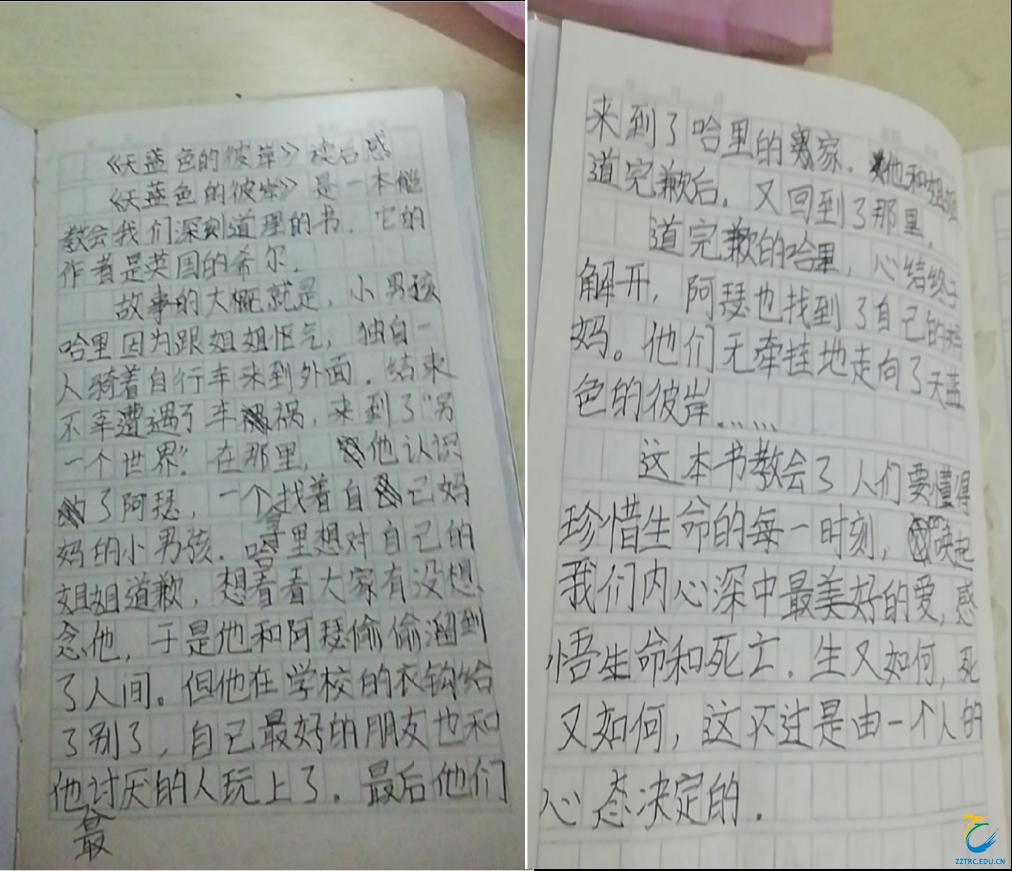 《天蓝色的彼岸》读后感
《天蓝色的彼岸》是一本能
教会我们深刻道理的书．它的
作者是英国的希尔．
故事的大概就是，小男孩
哈里因为跟姐姐怄气，独自一
人骑着自行车来到外面．结束
不幸遭遇了车祸，来到了“另
一个世界”．在那里，他认识
了阿瑟，一个找着自己妈
妈的小男孩．哈里想对自己的
姐姐道歉，想看看大家有没想
念他，于是他和阿瑟偷偷溜到
了人间。但他在学校的衣钩给
了别了，自己最好的朋友也和
他讨厌的人玩上了．最后他们
最
来到了哈里的家．他和姐姐
道完歉后，又回到了那里．
道完歉的哈里，心结终于
解开，阿瑟也找到了自己的妈
妈。他们无牵挂地走向了天蓝
色的彼岸……
这本书教会了人们要懂得
珍惜生命的每一时刻，唤起
我们内心深中最美好的爱，感
悟生命和死亡．生又如何，死
又如何，这不过是由一个人的
心态决定的．
ZZTRC.EDU.CN